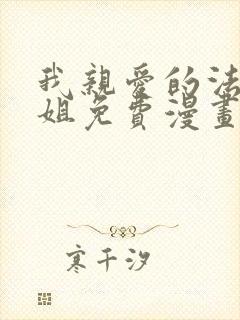 我親愛的法
姐免費漫畫
寒千汐